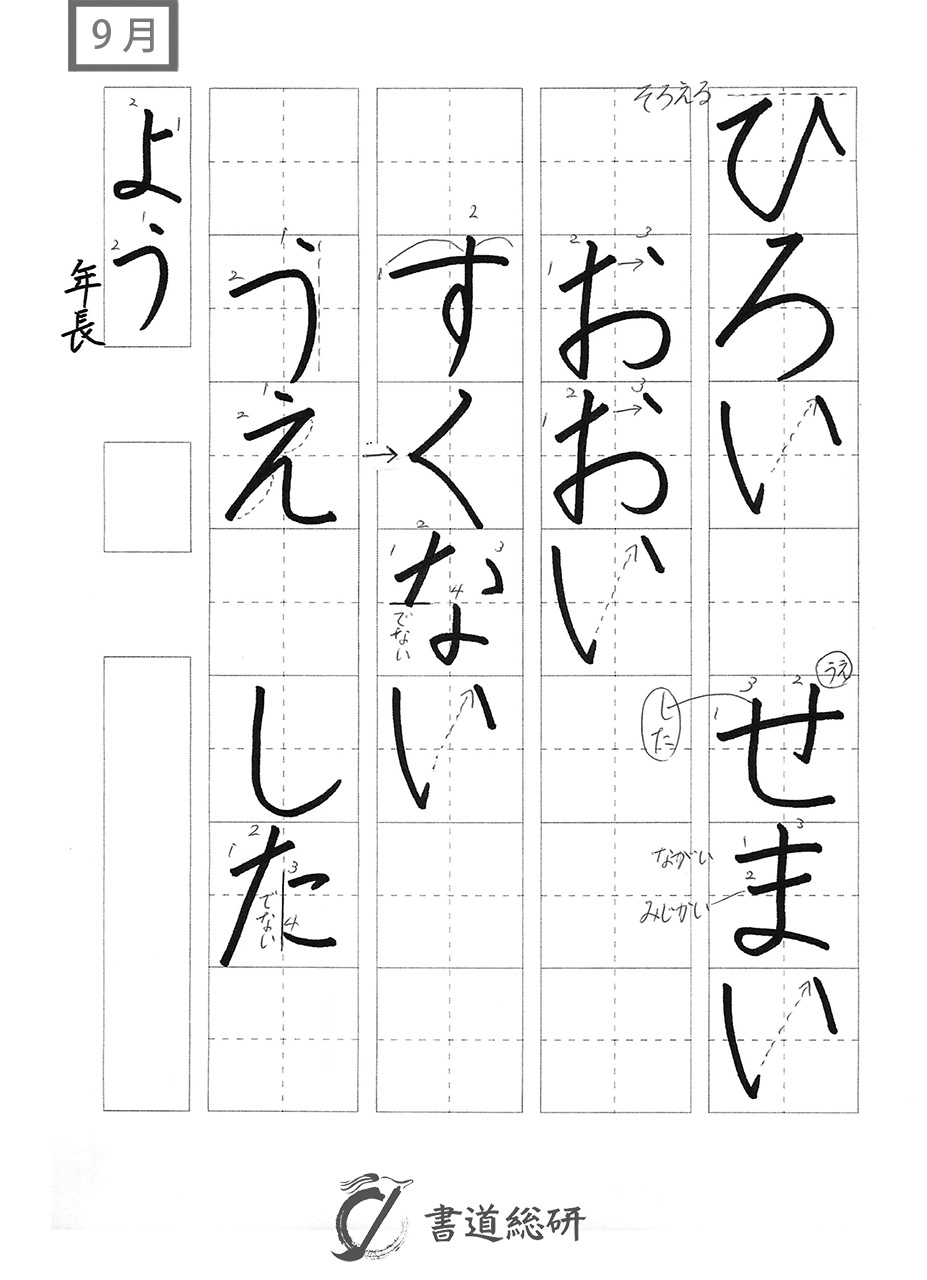 9月
そろえる
ひろい せまい
うえ
した
ながい
みじかい
おおい
すくない
でない
うえ した
でない
よう
年長
書道総研